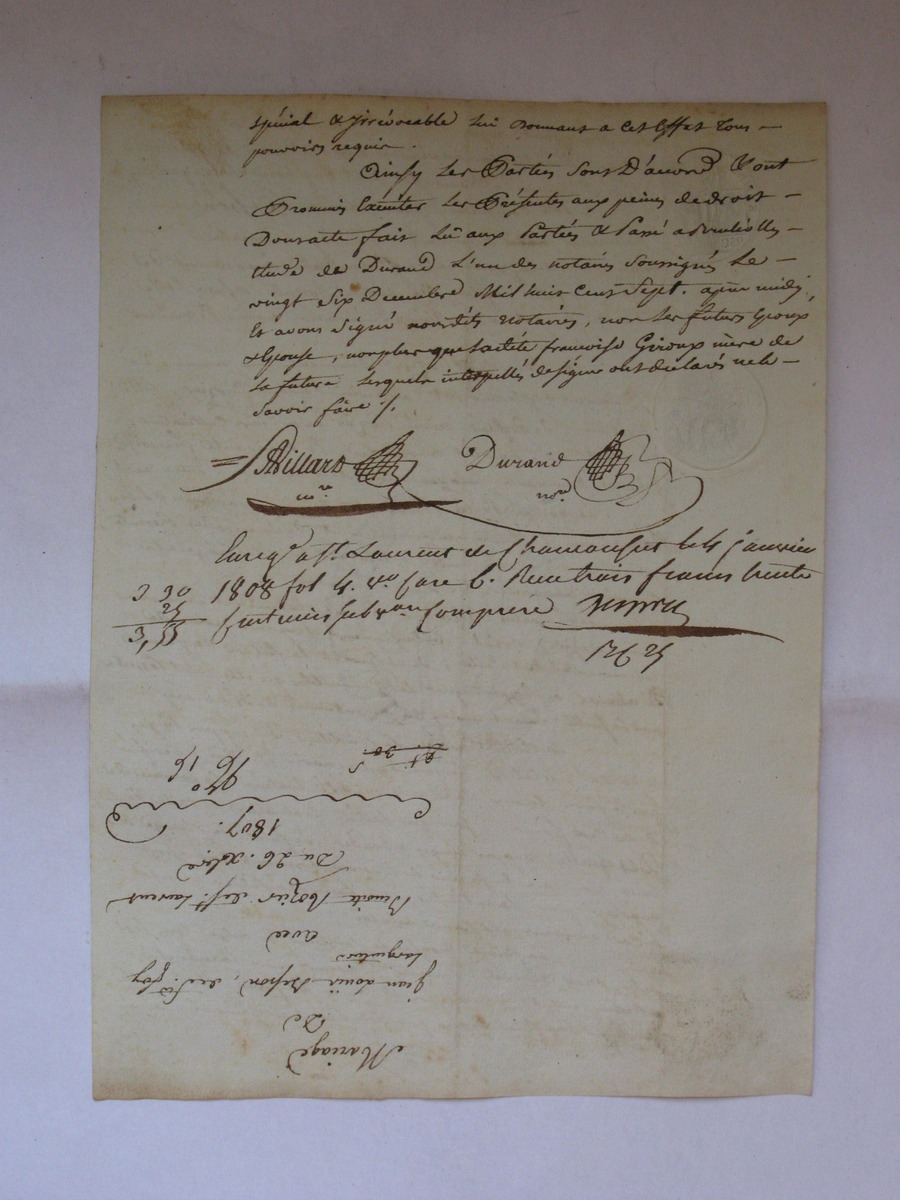 spécial & irrévocable lui donnant a cet effet tous
pouvoirs requis.
Ainsy les Parties sont D'accord & ont
Promis Exécuter les Présentes aux peines de droit
Dont acte fait lû aux Parties & Passé
Etude de Durand L'un des notaires soussignés Le
vingt Six Decembre Mil huit Cent Sept. après midy,
Et avons Signé nousdits notaires, non les futurs Epoux
& Epouse, nonplus que laditte francoise Giroux mère de
La future Lesquels interpellés de signer ont declarés ne le
savoir faire ./.
Villard
nre
Durand
nore
Enregé a St. Laurent de Chamousset le 4 janvier
1808 fol 4. vo Case 6. Reçu trois francs trente
Centimes subvon Comprise
3 30
25
3,55
Mariage
De
jean Louis Besson, de Ste foy
Largentiere
avec
Benoite Rozier de St. Laurent
Du 26. xbre
1807.
No 16